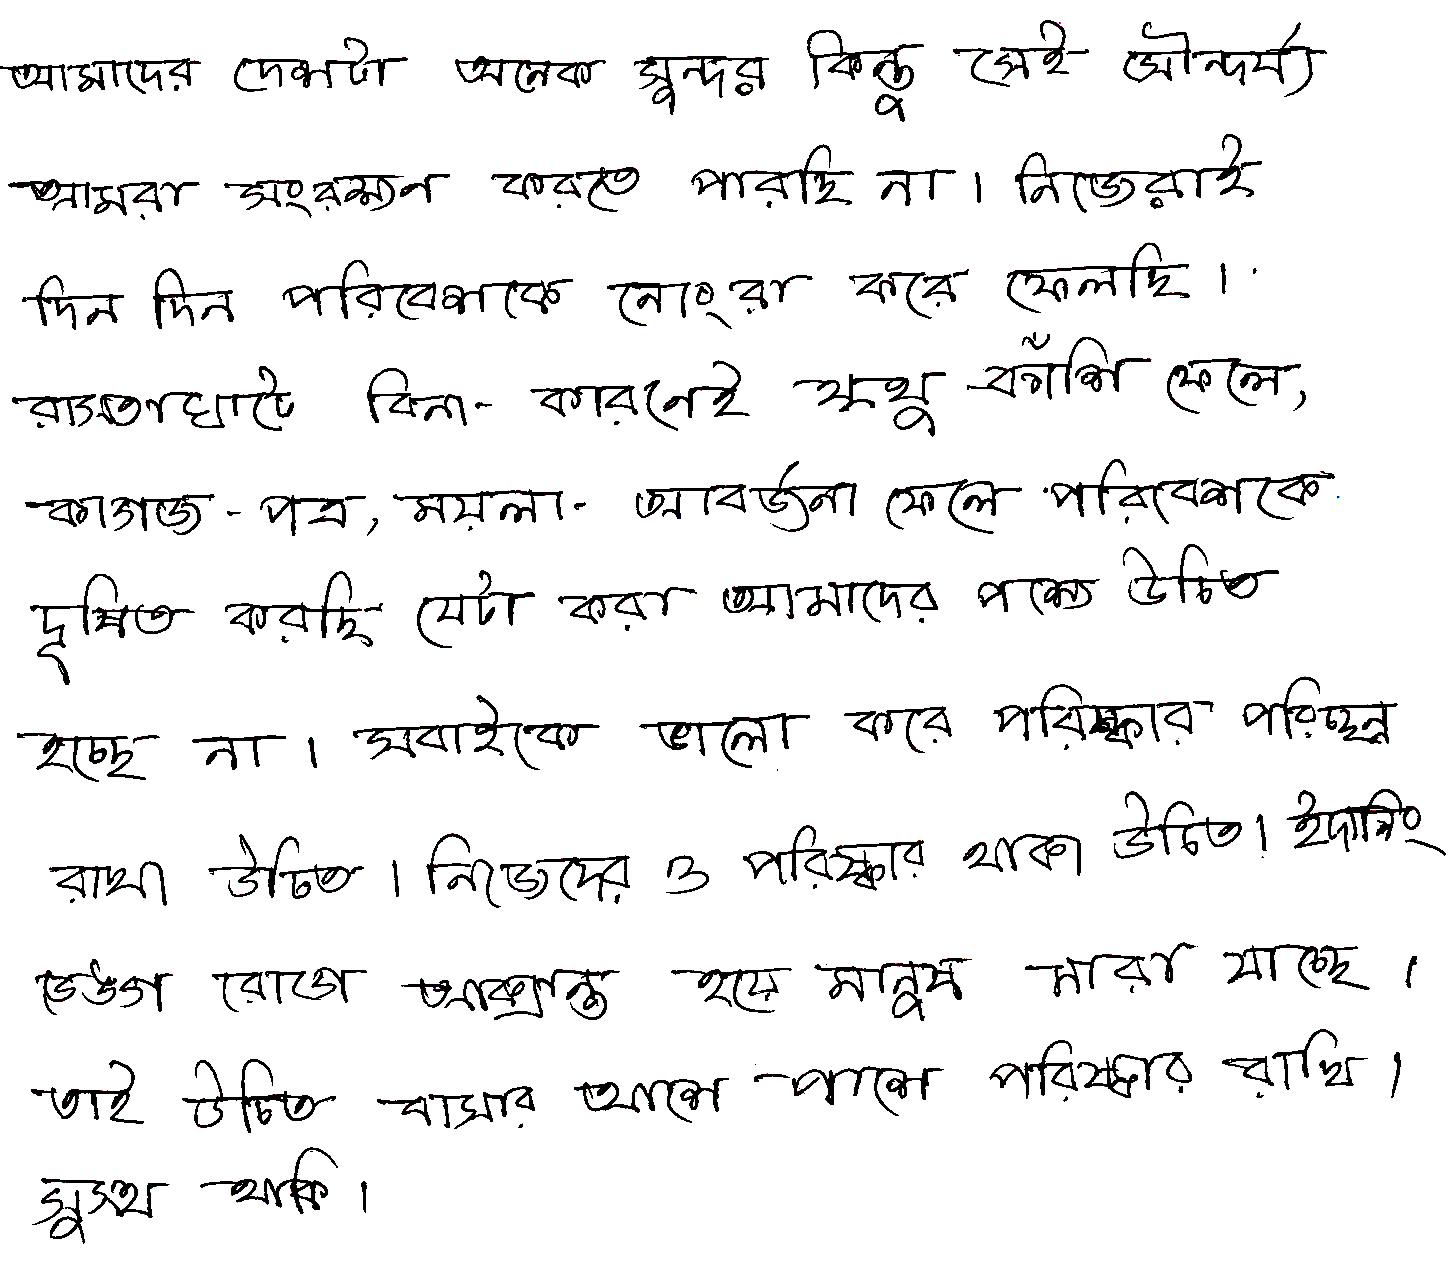 আমাদের দেশটা অনেক সুন্দর কিন্তু সেই সৌন্দর্য্য
আমরা সংরক্ষন করতে পারছি না। নিজেরাই
দিন দিন পরিবেশকে নোংরা করে ফেলছি।
রাস্তাঘাটে বিনা-কারনেই থুথু কাঁশি ফেলে,
কাগজ-পত্র, ময়লা-আবর্জনা ফেলে পরিবেশকে
দূষিত করছি যেটা করা আমাদের পক্ষে উচিত
হচ্ছে না। সবাইকে ভালো করে পরিস্কার পরিচ্ছন্ন
রাখা উচিত। নিজেদের ও পরিস্কার থাকা উচিত। ইদানিং
ডেঙ্গু রোগে আক্রান্ত হয়ে মানুষ মারা যাচ্ছে।
তাই উচিত বাসার আশে পাশে পরিষ্কার রাখি।
সুস্থ থাকি।